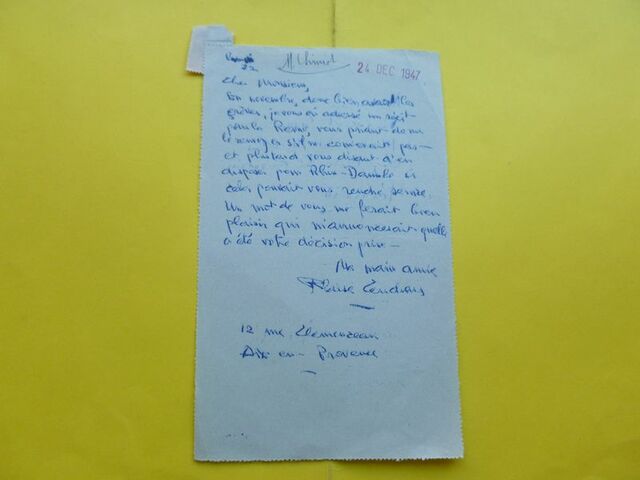 22
24 DEC 1947
Cher Monsieur,
En novembre, donc bien avant les
grèves, je vous ai adressé un récit
pour la Revue, vous priant de me
le renvoyer s'il ne convenait pas —
et plus tard vous disant d'en
disposer pour Rhin-Danube si
cela pouvait vous rendre service.
Un mot de vous me ferait bien
plaisir qui m'annoncerait quelle
a été votre décision prise —
Ma main amie
Blaise Cendrars
12 rue Clemenceau
Aix-en-Provence